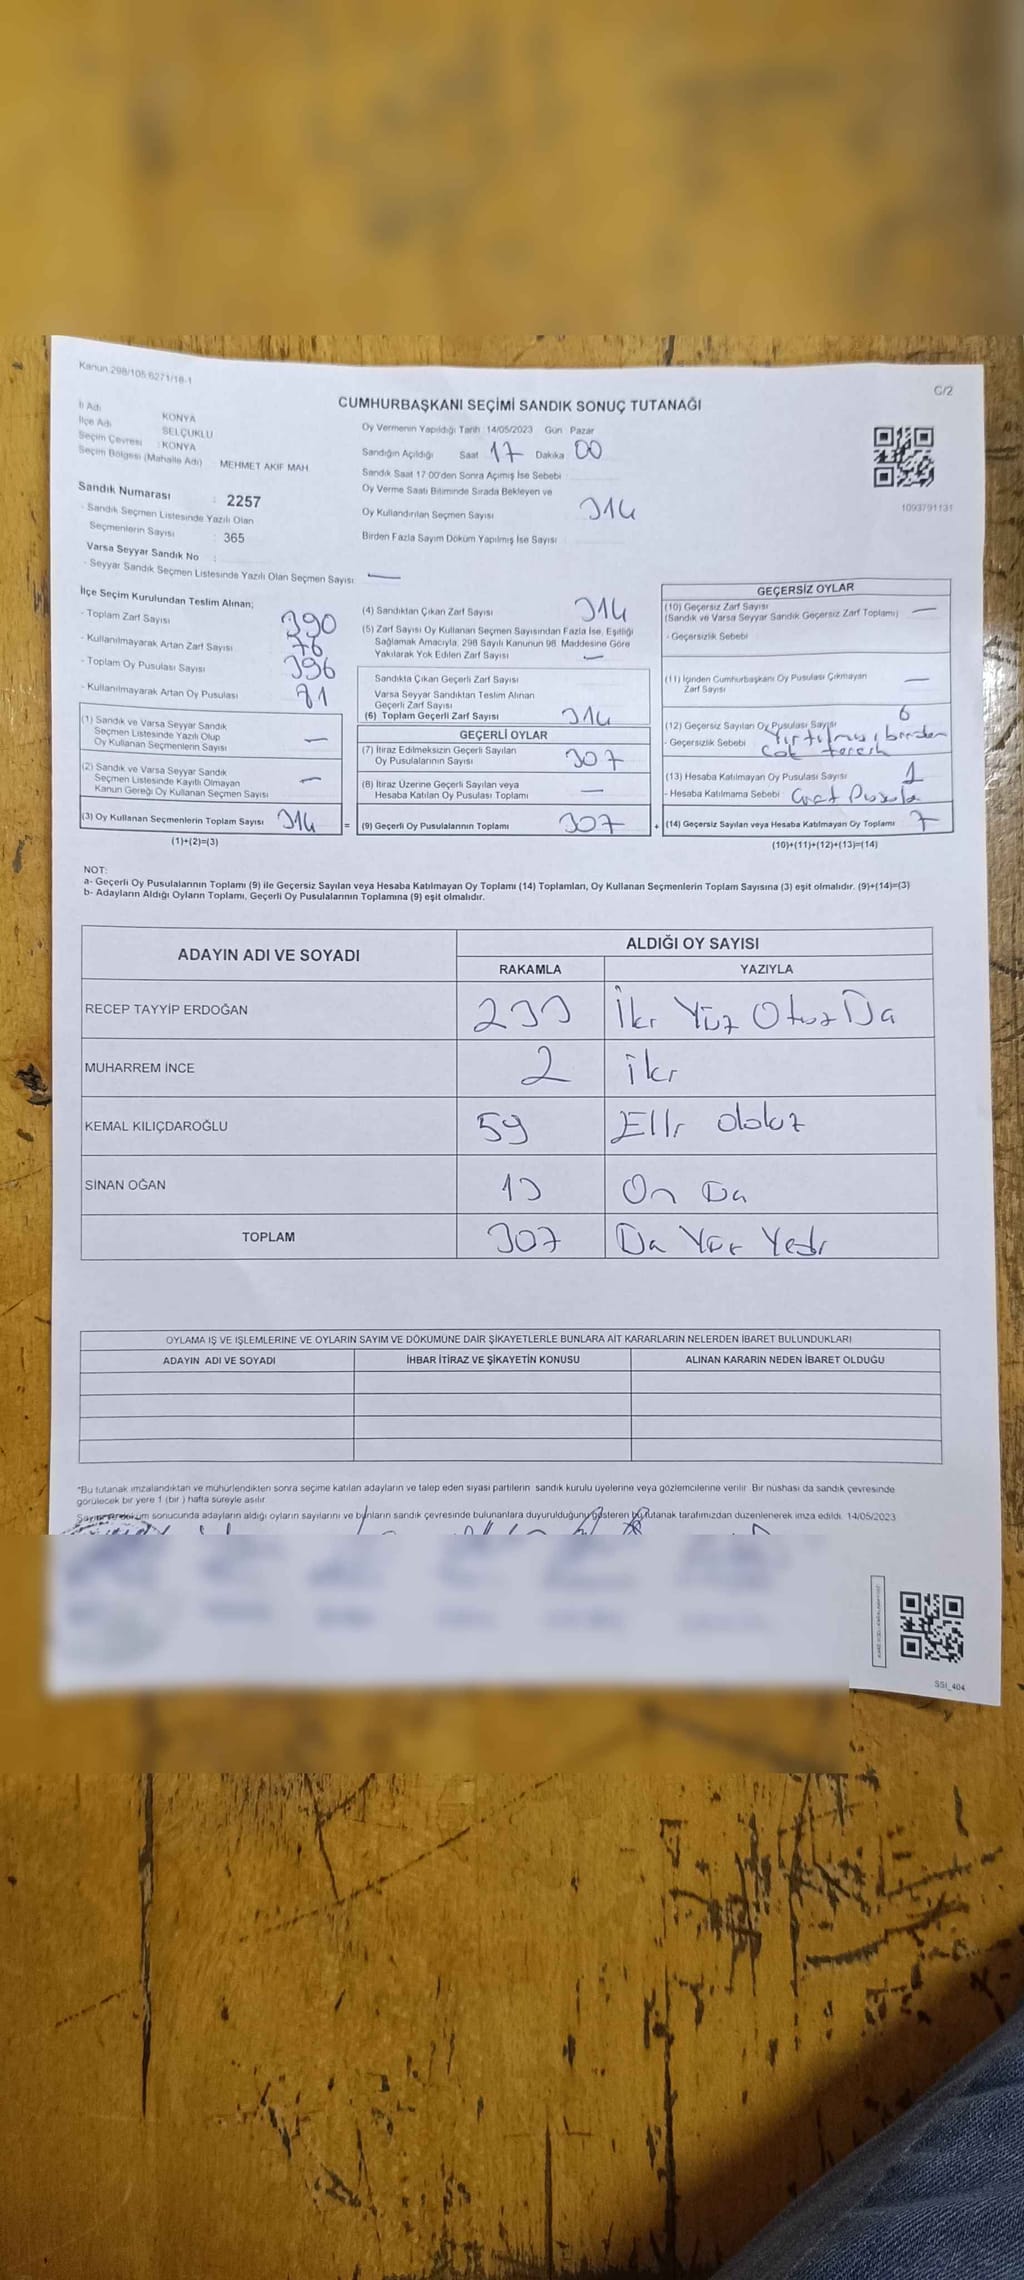 Kanun 298/105 6271/18-1
G/2
CUMHURBAŞKANI SEÇİMİ SANDIK SONUÇ TUTANAĞI
İl Adı : KONYA
İlçe Adı : SELÇUKLU
Seçim Çevresi : KONYA
Seçim Bölgesi (Mahalle Adı) : MEHMET AKİF MAH
Sandık Numarası : 2257
- Sandık Seçmen Listesinde Yazılı Olan
Seçmenlerin Sayısı : 365
Varsa Seyyar Sandık No :
- Seyyar Sandık Seçmen Listesinde Yazılı Olan Seçmen Sayısı —
Oy Vermenin Yapıldığı Tarih :14/05/2023 Gün : Pazar
Sandığın Açıldığı Saat 17 Dakika 00
Sandık Saat 17:00'den Sonra Açılmış İse Sebebi
Oy Verme Saati Bitiminde Sırada Bekleyen ve
Oy Kullandırılan Seçmen Sayısı 314
Birden Fazla Sayım Döküm Yapılmış İse Sayısı
1093791131
İlçe Seçim Kurulundan Teslim Alınan;
- Toplam Zarf Sayısı 390
- Kullanılmayarak Artan Zarf Sayısı 76
- Toplam Oy Pusulası Sayısı 396
- Kullanılmayarak Artan Oy Pusulası 81
(1) Sandık ve Varsa Seyyar Sandık
Seçmen Listesinde Yazılı Olup
Oy Kullanan Seçmenlerin Sayısı —
(2) Sandık ve Varsa Seyyar Sandık
Seçmen Listesinde Kayıtlı Olmayan
Kanun Gereği Oy Kullanan Seçmen Sayısı —
(3) Oy Kullanan Seçmenlerin Toplam Sayısı 314 =
(1)+(2)=(3)
(4) Sandıktan Çıkan Zarf Sayısı 314
(5) Zarf Sayısı Oy Kullanan Seçmen Sayısından Fazla İse, Eşitliği
Sağlamak Amacıyla, 298 Sayılı Kanunun 98. Maddesine Göre
Yakılarak Yok Edilen Zarf Sayısı —
Sandıkta Çıkan Geçerli Zarf Sayısı
Varsa Seyyar Sandıktan Teslim Alınan
Geçerli Zarf Sayısı
(6) Toplam Geçerli Zarf Sayısı 314
GEÇERLİ OYLAR
(7) İtiraz Edilmeksizin Geçerli Sayılan
Oy Pusulalarının Sayısı 307
(8) İtiraz Üzerine Geçerli Sayılan veya
Hesaba Katılan Oy Pusulası Toplamı —
(9) Geçerli Oy Pusulalarının Toplamı 307 +
GEÇERSİZ OYLAR
(10) Geçersiz Zarf Sayısı
(Sandık ve Varsa Seyyar Sandık Geçersiz Zarf Toplamı) —
- Geçersizlik Sebebi
(11) İçinden Cumhurbaşkanı Oy Pusulası Çıkmayan
Zarf Sayısı —
(12) Geçersiz Sayılan Oy Pusulası Sayısı 6
- Geçersizlik Sebebi Yırtılmış, birden
çok tercih
(13) Hesaba Katılmayan Oy Pusulası Sayısı 1
- Hesaba Katılmama Sebebi Pusula
(14) Geçersiz Sayılan veya Hesaba Katılmayan Oy Toplamı 7
(10)+(11)+(12)+(13)=(14)
NOT:
a- Geçerli Oy Pusulalarının Toplamı (9) ile Geçersiz Sayılan veya Hesaba Katılmayan Oy Toplamı (14) Toplamları, Oy Kullanan Seçmenlerin Toplam Sayısına (3) eşit olmalıdır. (9)+(14)=(3)
b- Adayların Aldığı Oyların Toplamı, Geçerli Oy Pusulalarının Toplamına (9) eşit olmalıdır.
ADAYIN ADI VE SOYADI
ALDIĞI OY SAYISI
RAKAMLA YAZIYLA
RECEP TAYYİP ERDOĞAN 233 İki Yüz Otuz Üç
MUHARREM İNCE 2 iki
KEMAL KILIÇDAROĞLU 59 Elli dokuz
SİNAN OĞAN 13 On Üç
TOPLAM 307 Üç Yüz Yedi
OYLAMA İŞ VE İŞLEMLERİNE VE OYLARIN SAYIM VE DÖKÜMÜNE DAİR ŞİKAYETLERLE BUNLARA AİT KARARLARIN NELERDEN İBARET BULUNDUKLARI
ADAYIN ADI VE SOYADI İHBAR İTİRAZ VE ŞİKAYETİN KONUSU ALINAN KARARIN NEDEN İBARET OLDUĞU
*Bu tutanak imzalandıktan ve mühürlendikten sonra seçime katılan adayların ve talep eden siyasi partilerin sandık kurulu üyelerine veya gözlemcilerine verilir. Bir nüshası da sandık çevresinde
görülecek bir yere 1 (bir ) hafta süreyle asılır.
Sayım ve döküm sonucunda adayların aldığı oyların sayılarını ve bunların sandık çevresinde bulunanlara duyurulduğunu gösteren bu tutanak tarafımızdan düzenlenerek imza edildi. 14/05/2023
SSİ_404